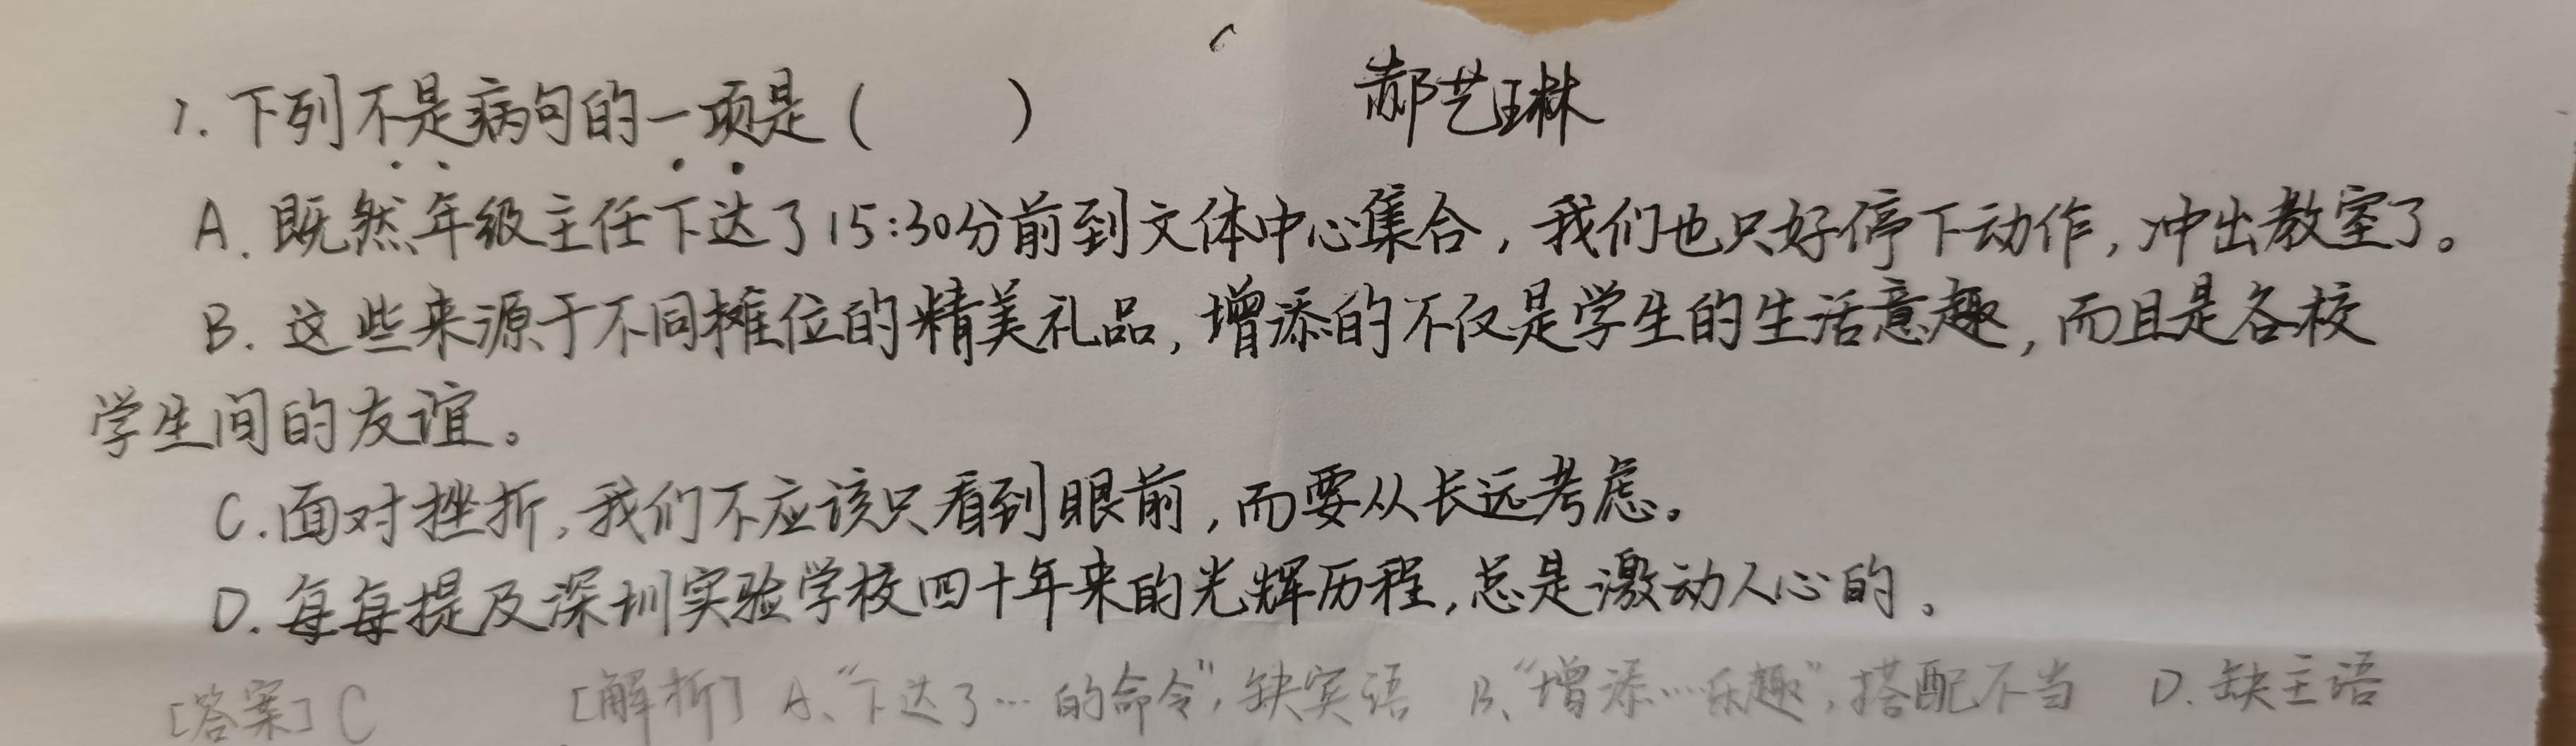 1. 下列不是病句的一项是（    ）    郝艺琳
A. 既然年级主任下达了15:30分前到文体中心集合，我们也只好停下动作，冲出教室了。
B. 这些来源于不同摊位的精美礼品，增添的不仅是学生的生活意趣，而且是各校
学生间的友谊。
C. 面对挫折，我们不应该只看到眼前，而要从长远考虑。
D. 每每提及深圳实验学校四十年来的光辉历程，总是激动人心的。
[答案] C    [解析] A、“下达了…的命令”，缺宾语  B、“增添…乐趣”，搭配不当  D. 缺主语